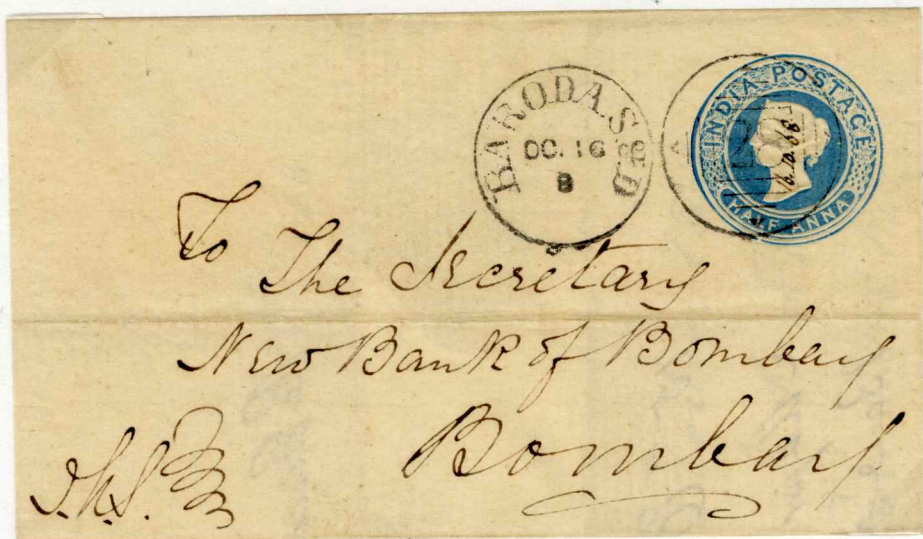 BARODA. S&D
OC. 16
8
INDIA POSTAGE
HALF ANNA
16.10.68
To
The Secretary
New Bank of Bombay
Bombay